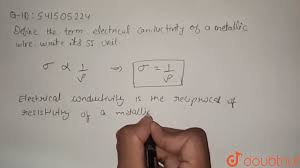 Q-ID: 541505224
Define the term electrical conductivity of a metallic
wire. write its SI unit.
σ ∝ 1/ρ ⇒ σ = 1/ρ
Electrical conductivity is the reciprocal of
resistivity of a metallic
doubtnut